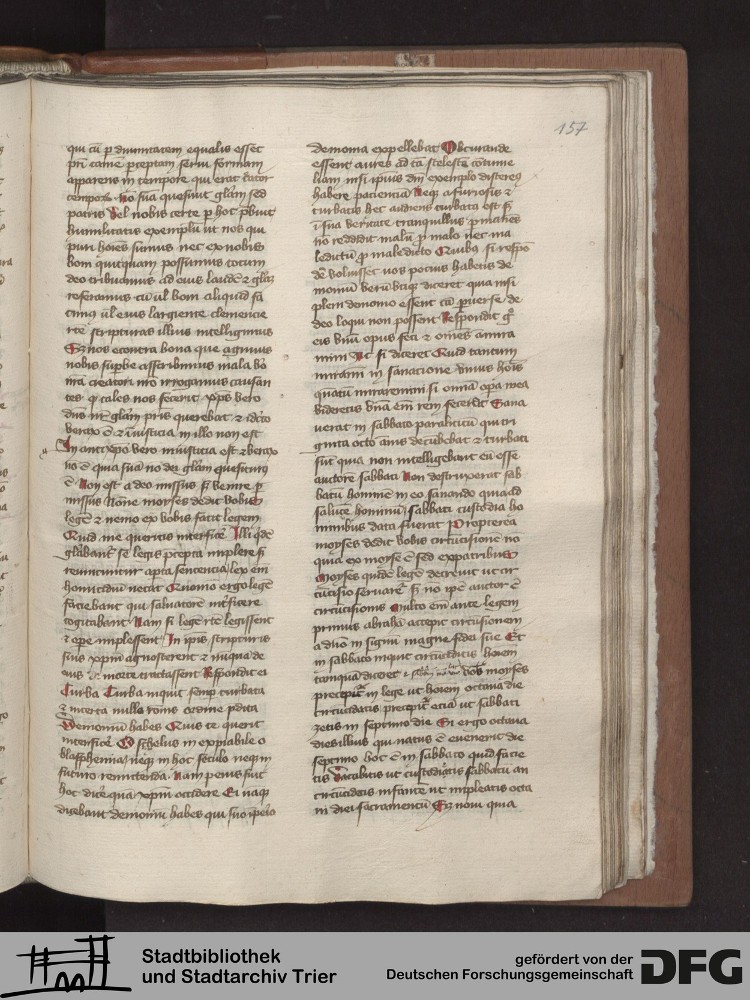 157
qui cū p diuinitatem equalis esset
pri carnē pceptam serui formam
apparens in tempore qui erat
tempora nō sua quesiuit glām sed
patris Vel nobis certe p hoc pbuit
humilitatis exemplū ut nos qui
puri hoīes sumus nec ex nobis
boni quitquam possumus totum
deo tribuamus ad eius laudē ⁊
referamus cū ul boni aliquid fa
cimus ul eius largiente clemencie
rcē scripturas illius intelligimus
Sz nos econtra bona que agimus
nobis supbe asscribimus mala
creatori nro irrogamus causan
tes q tales nos fecerit xps vero
dns nr glām pris querebat ⁊ idcō
verax ē ⁊ iniusticia in illo non est
In antixpo vero iniusticia est ⁊ verax
nō ē quia suā nō dei glām quesiuit
Non est a deo missus s venire p
missus Nōne moyses dedit vobis
legē ⁊ nemo ex vobis facit legem
Quid me queritis interficē Illi qdē
se legis pcepta implere s
sentencia lex em
homicidiū necat Quomō ergo legē
faciebant qui saluatorē intficere
cogitabant Nam si legē rcē legissent
⁊ opē implessent In ipis scripturis
suis xpm agnosterent ⁊ nūqua de
eius morte tractassent Respondit ei
Turba Turba inquit semp turbata
⁊ incerta nullo ordine pdita
Demoniū habes Quis te querit
interficē O schelus in expiabile o
blasphemia neq in hoc seculo neq in
futuro remittenda Nam peius fuit
hoc dicē qua xpm occidere Ei
dicebant demoniū habes qui suo ipeio
demonia expellebat Obturande
essent aures ad
nisi ipius dni exemplo disteres
habere pacienciā Neq a furiosis ⁊
turbatis hec audiens turbata est s
i sua veritate tranquillus pmanēs
nō reddidit malū p malo nec ma
ledictū p maledicto Quibus si respō
dē voluisset vos pocius habetis de
moniū diceret quia nisi
pleni demonio essent tā pverse de
deo loqui non possent Respondit g
eis vnū opus feci ⁊ omēs
mini Ac si diceret Quid tantum
miramī in sanacione vnius hoīs
quātū miraremini si omīa opa mea
videretis vnā em rem fecerat Sana
uerat in sabbato paraliticū qui tri
ginta octo annis decubebat ⁊ turbati
sūt quia non intelligebant eū esse
auctorē sabbati Non destruxerat sab
batū hominē in eo sanando quia ad
salutē hominū sabbati custodia ho
minibus data fuerat Propterea
moyses dedit vobis circūcisionē nō
quia ex moyse ē sed ex patribus
Moyses quidē legē decreuit ut cir
cūcisio seruarēt s nō ipē auctor ē
circūcisionis Multo em ante legem
primus abrahā accepit circūcisionem
a dno in signū magne fidei sue Et
in sabbato inquit circūciditis hoīem
tamquā diceret moyses
precepit in lege ut hoīem octaua die
circūcidatis precepit eciā ut sabbati
zetis in septimo die Si ergo octaua
dies illius qui natus ē euenerit die
septimo hoc ē in sabbato quid facie
tis Vacabitis ut custodiatis sabbatū an
circūciditis infante ut impleatis octa
ui diei sacramentū Sz noui quia
Stadtbibliothek
und Stadtarchiv Trier
gefördert von der
Deutschen Forschungsgemeinschaft
DFG